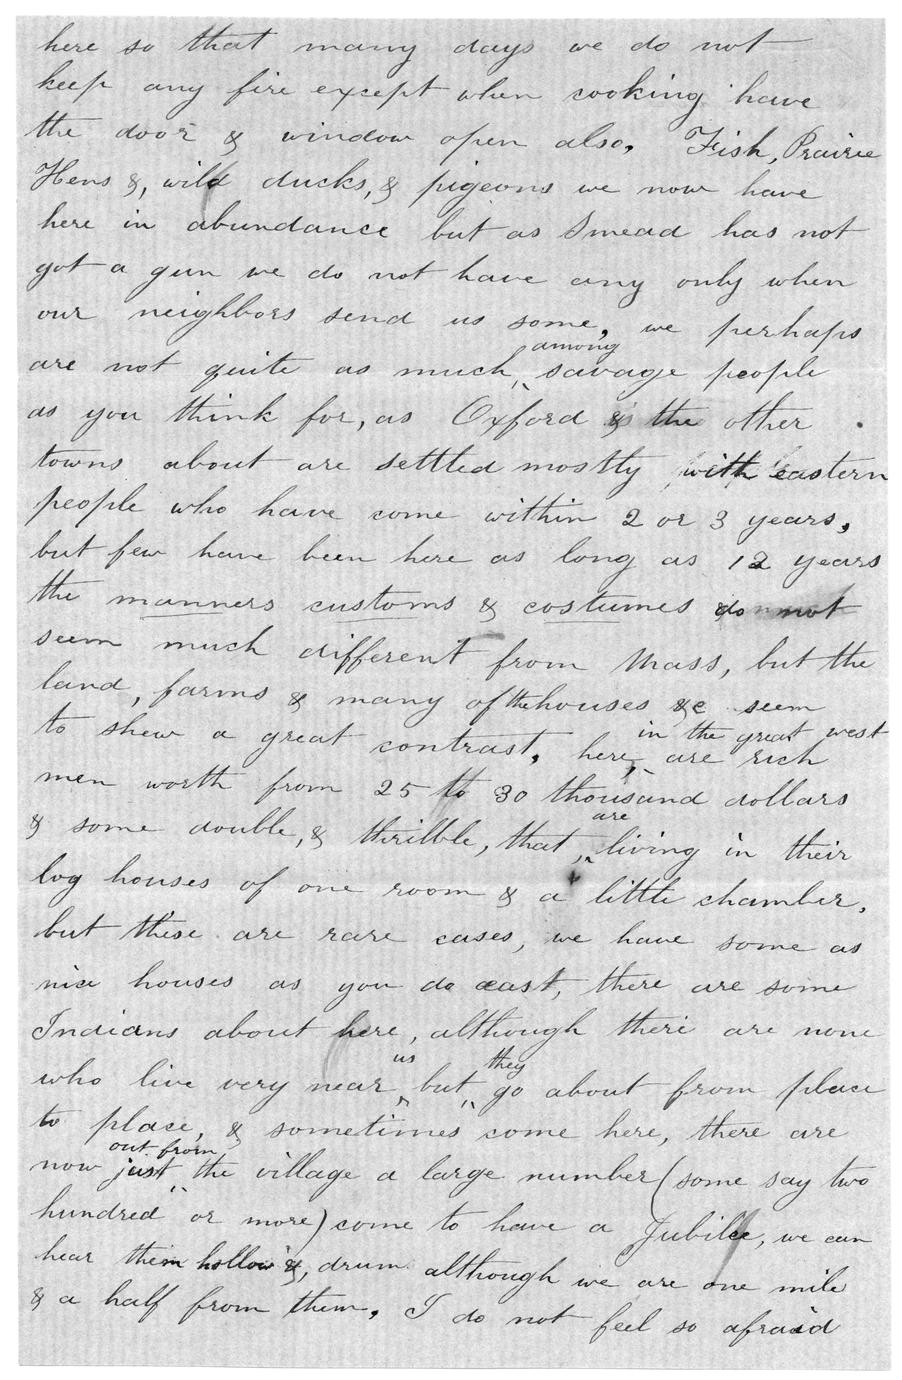 here so that many days we do not
keep any fire except when cooking have
the door & window open also, Fish, Prairie
Hens &, wild ducks, & pigeons we now have
here in abundance but as Smead has not
got a gun we do not have any only when
our neighbors send us some, we perhaps
among
are not quite as much savage people
as you think for, as Oxford & the other
towns about are settled mostly with eastern
people who have come within 2 or 3 years,
but few have been here as long as 12 years
the manners customs & costumes do not
seem much different from Mass, but the
land, farms & many of the houses &c seem
in the great west
to shew a great contrast, here, are rich
men worth from 25 to 30 thousand dollars
are
& some double, & thribble, that, living in their
log houses of one room & a little chamber,
but these are rare cases, we have some as
nice houses as you do east, there are some
Indians about here, although there are none
us they
who live very near but go about from place
to place, & sometimes come here, there are
out from
now just the village a large number (some say two
hundred or more) come to have a Jubilee, we can
hear them hollow &, drum although we are one mile
& a half from them, I do not feel so afraid